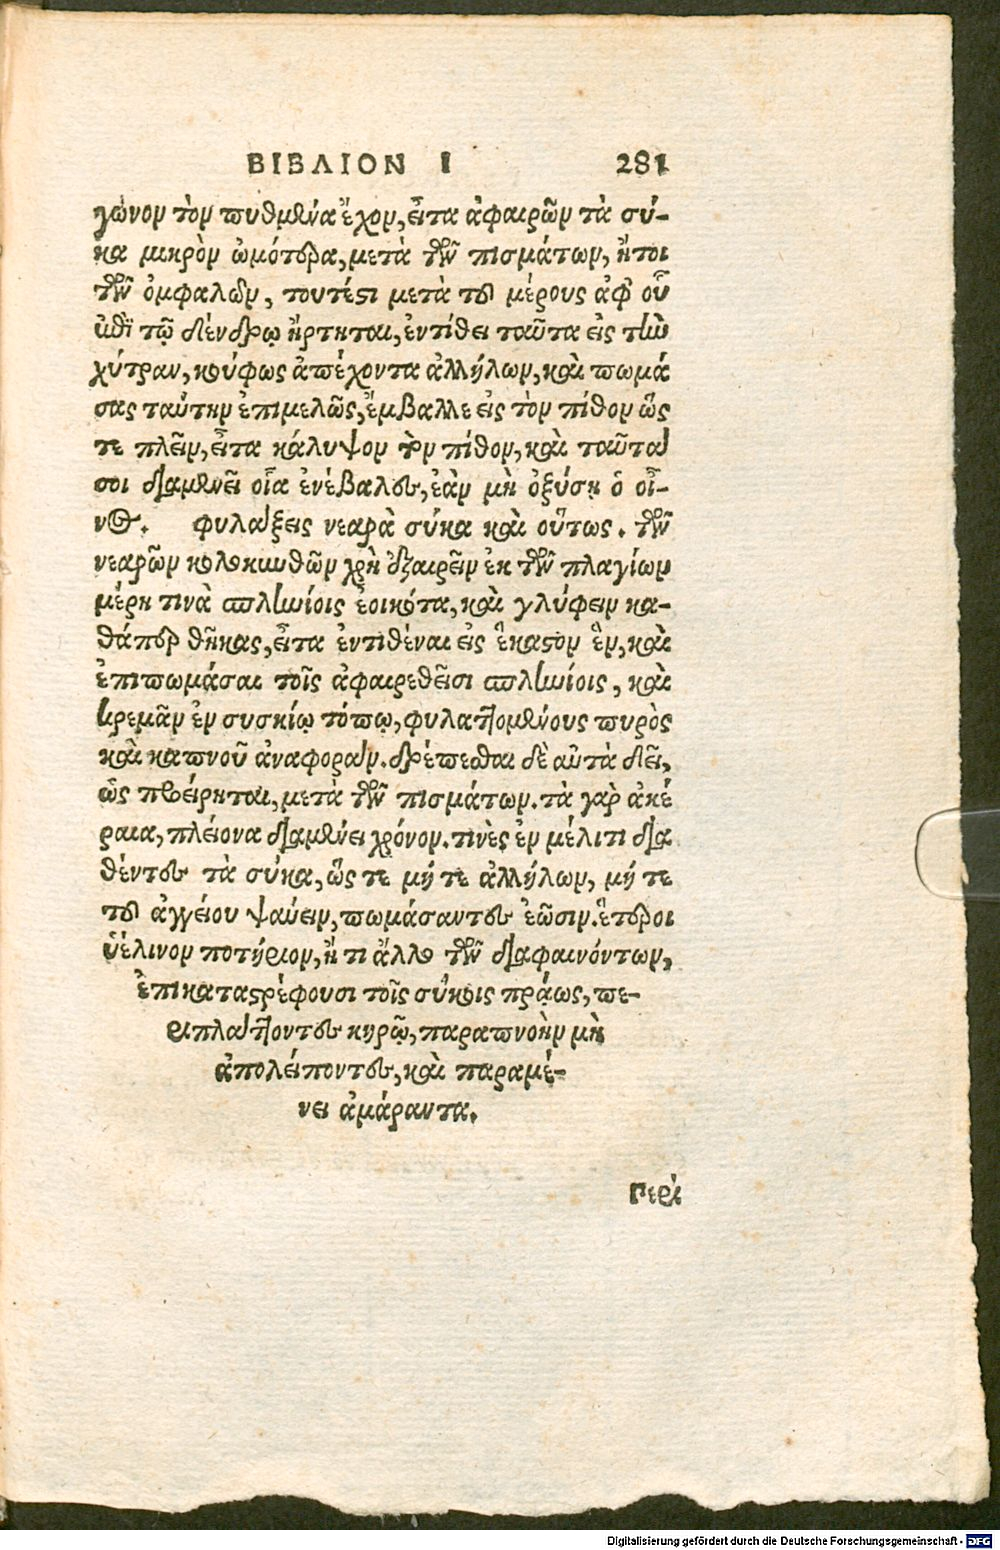 ΒΙΒΛΙΟΝ Ι 281
γώνον τὸν πυθμένα ἔχον, εἶτα ἀφαιρῶν τὰ σύ-
κα μικρὸν ὠμότερα, μετὰ τῶν πισμάτων, ἤτοι
τῶν ὀμφαλῶν, τουτέστι μετὰ τοῦ μέρους ἀφ' οὗ
ἐπὶ τῷ δένδρῳ ἤρτηται, ἐντίθει ταῦτα εἰς τὴν
χύτραν, κούφως ἀπέχοντα ἀλλήλων, καὶ πωμά
σας ταύτην ἐπιμελῶς, ἔμβαλλε εἰς τὸν πίθον ὥς
τε πλεῖν, εἶτα κάλυψον τὸν πίθον, καὶ ταῦτα
σοι διαμενεῖ οἷα ἐνέβαλες, ἐὰν μὴ ὀξύσῃ ὁ οἶ-
νος. φυλάξεις νεαρὰ σύκα καὶ οὕτως. τῶν
νεαρῶν κολοκυνθῶν χρὴ ἐξαιρεῖν ἐκ τῶν πλαγίων
μέρη τινὰ σπληνίοις ἐοικότα, καὶ γλύφειν κα-
θάπερ θήκας, εἶτα ἐντιθέναι εἰς ἕκαστον ἓν, καὶ
ἐπιπωμάσαι τοῖς ἀφαιρεθεῖσι σπληνίοις, καὶ
κρεμᾶν ἐν συσκίῳ τόπῳ, φυλαττομένους πυρὸς
καὶ καπνοῦ ἀναφοράν. δρέπεσθαι δὲ αὐτὰ δεῖ,
ὡς προείρηται, μετὰ τῶν πισμάτων. τὰ γὰρ ἀκέ
ραια, πλείονα διαμένει χρόνον. τινὲς ἐν μέλιτι δια
θέντες τὰ σύκα, ὥς τε μή τε ἀλλήλων, μή τε
τοῦ ἀγγείου ψαύειν, πωμάσαντες ἐῶσιν. ἕτεροι
ὑέλινον ποτήριον, ἤ τι ἄλλο τῶν διαφαινόντων,
ἐπικαταστρέφουσι τοῖς σύκοις πράως, πε-
ριπλάττοντες κηρῷ, παραπνοὴν μὴ
ἀπολείποντες, καὶ παραμέ-
νει ἀμάραντα.
Περὶ
Digitalisierung gefördert durch die Deutsche Forschungsgemeinschaft - DFG